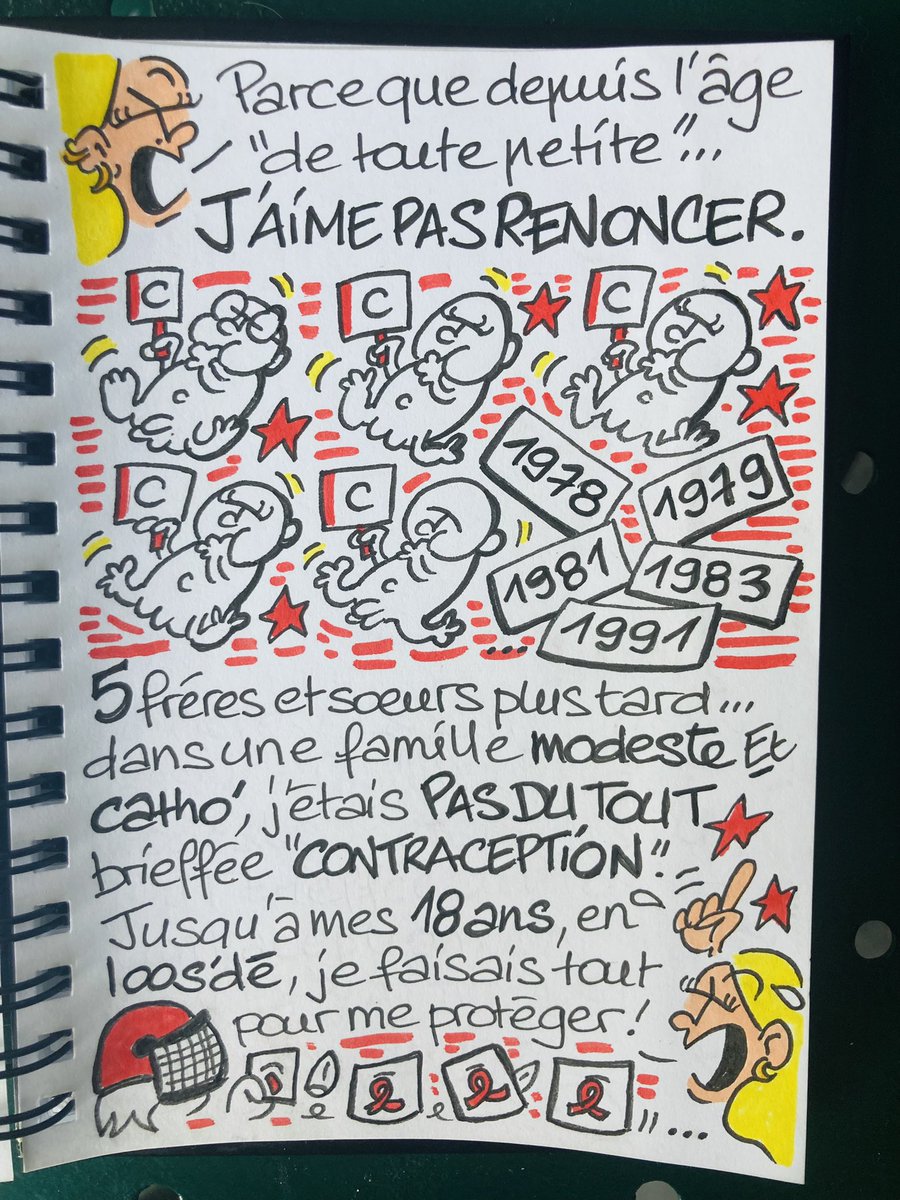 Parce que depuis l'âge
"de toute petite"...
J'AIME PAS RENONCER.
C
C
C
C
C
C
C
1978
1979
1981
1983
...
1991
5 fréres et soeurs plus tard...
dans une famille modeste Et
catho', j'étais PAS DU TOUT
brieffée "CONTRACEPTION".
Jusqu'à mes 18 ans, en
loos'dé, je faisais tout
pour me protéger!
...